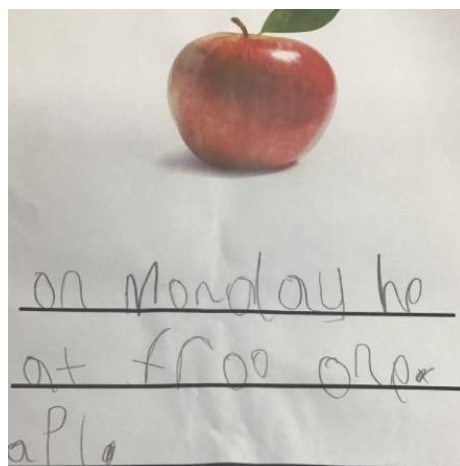 on Monday he
at froo one
aPle